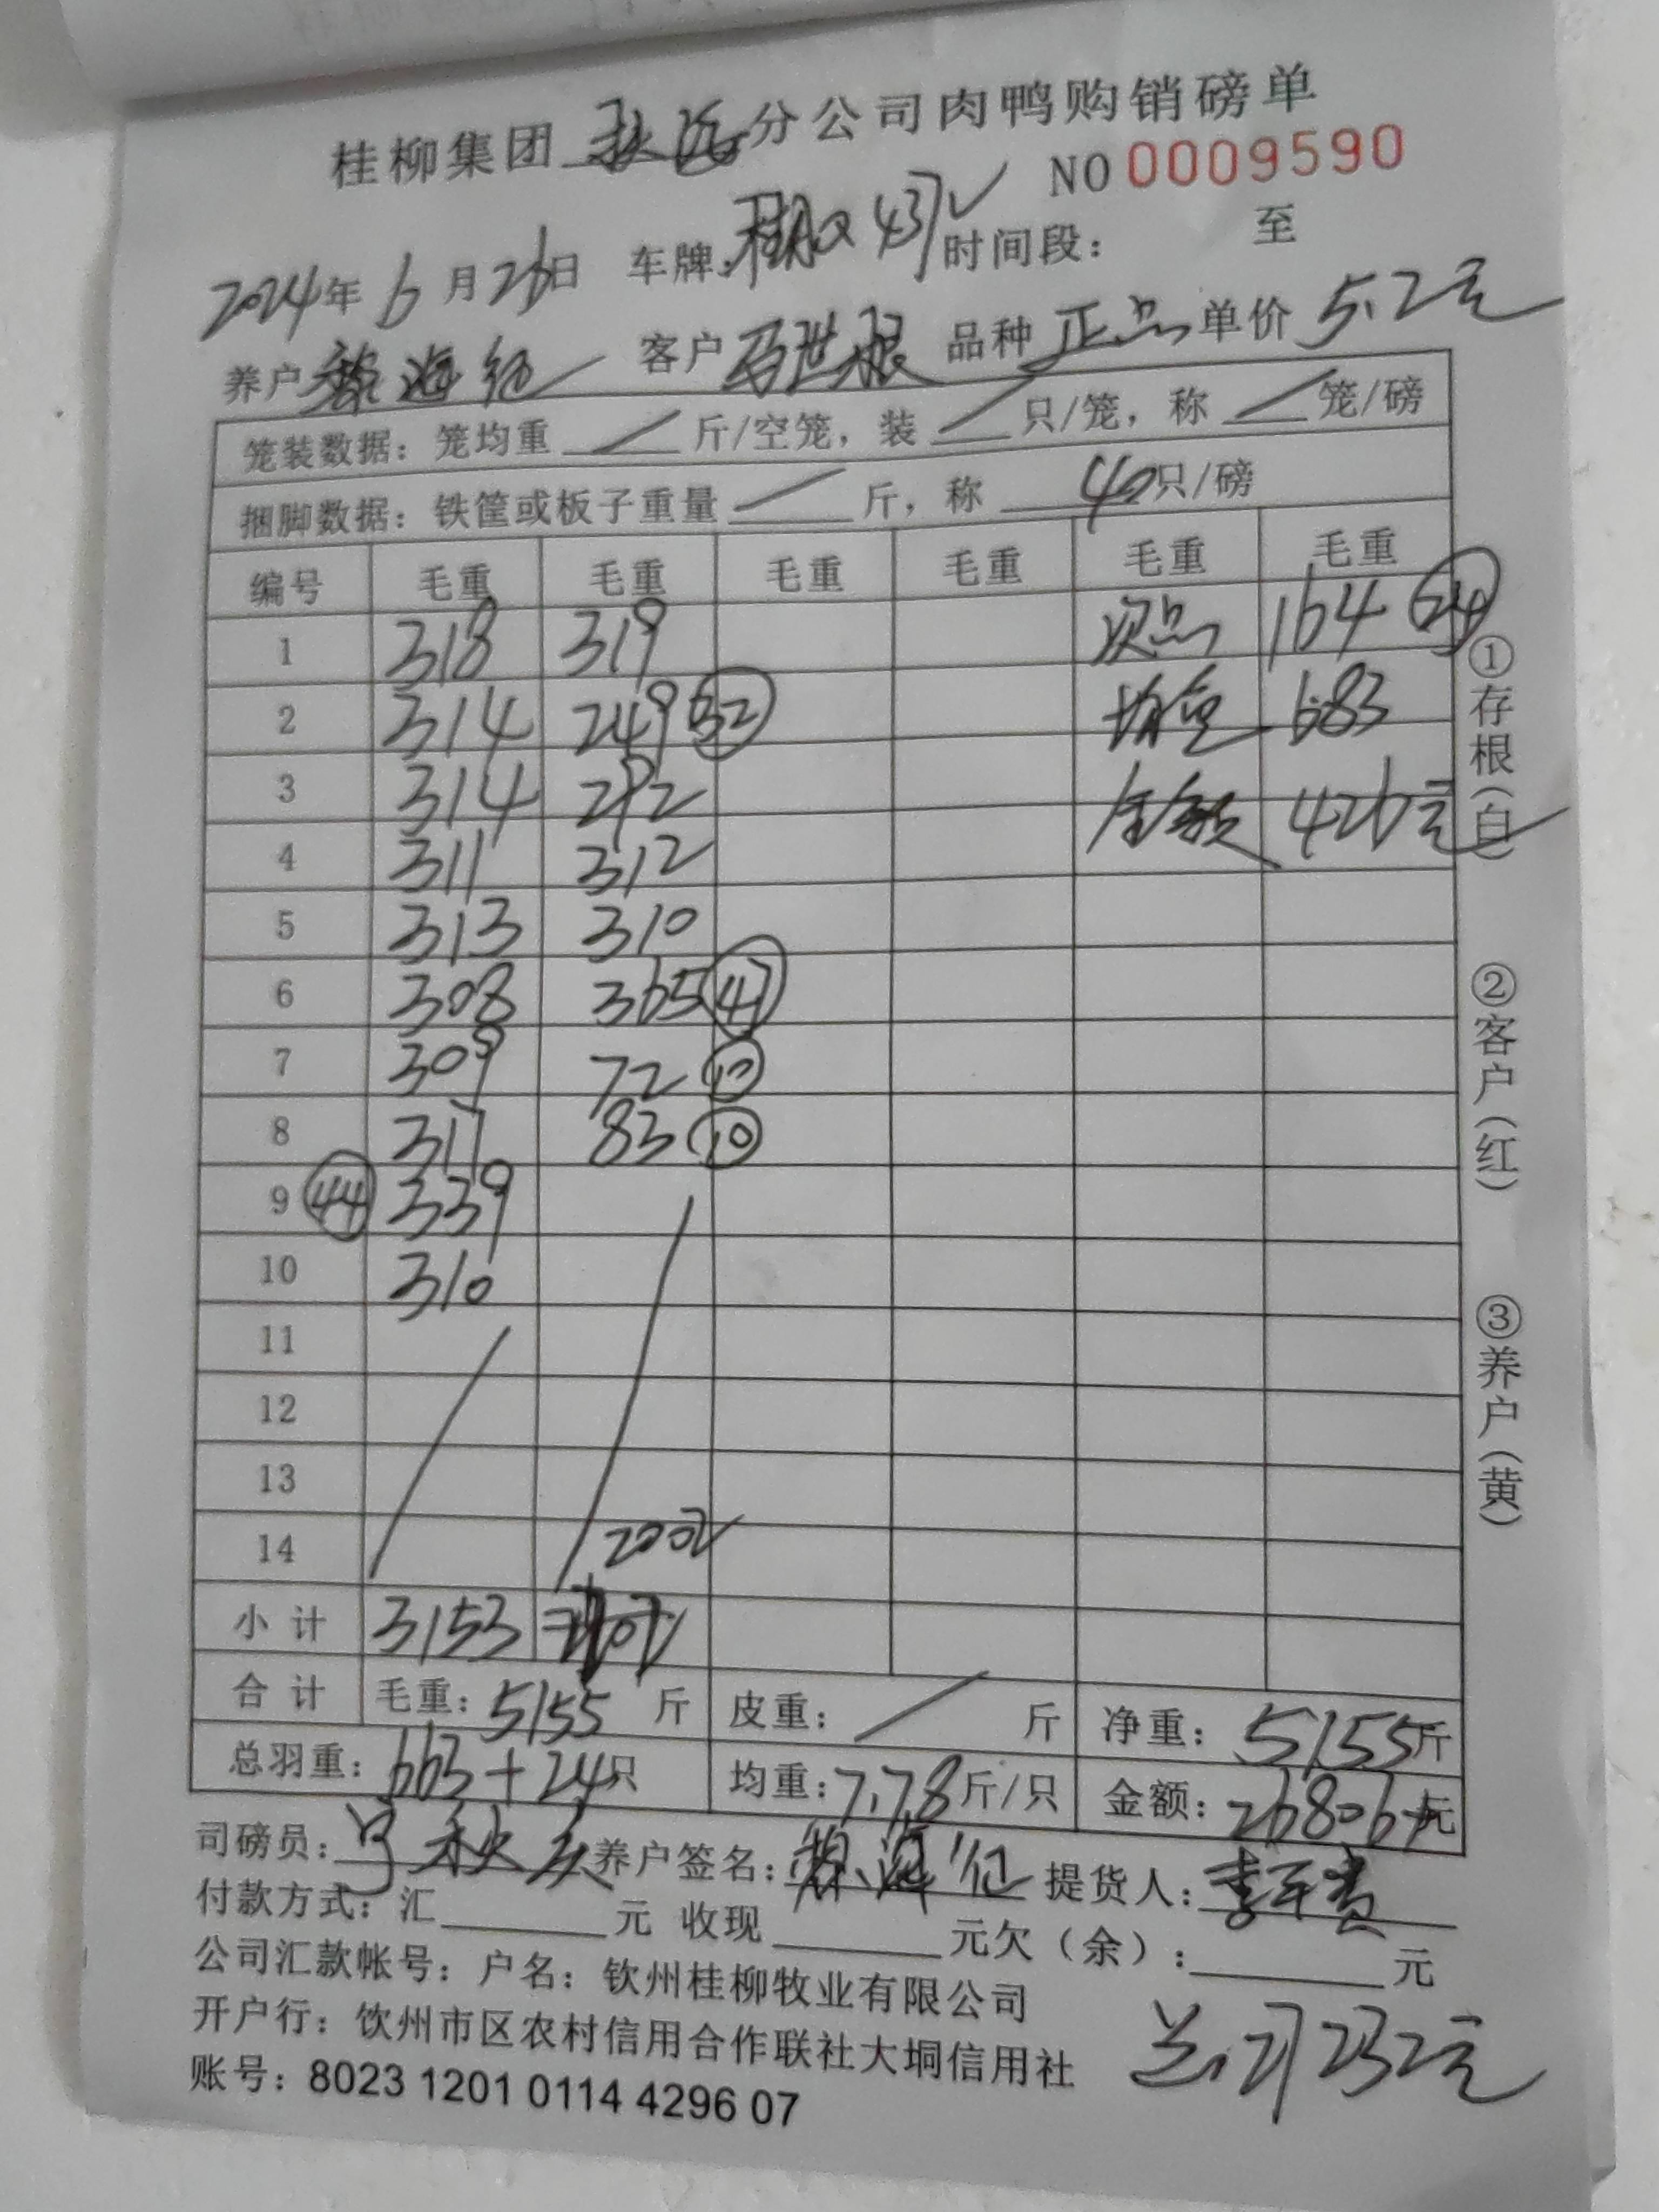 桂柳集团 分公司肉鸭购销磅单
NO 0009590
2024年 6月26日 车牌: 437 时间段: 至
养户 海 客户 世根 品种 正品 单价 5.2元
笼装数据: 笼均重 / 斤/空笼, 装 / 只/笼, 称 / 笼/磅
捆脚数据: 铁筐或板子重量 / 斤, 称 40只/磅
编号 毛重 毛重 毛重 毛重 毛重 毛重
1 318 319 次品 164 24
2 314 249 32 均 6.83
3 314 292 金额 426元
4 311 312
5 313 310
6 308 365 47
7 309 72 10
8 317 83 10
9 44 339
10 310
11
12
13
14 2002
小计 3153
合计 毛重: 5155 斤 皮重: / 斤 净重: 5155斤
总羽重: 663+24只 均重: 7.78斤/只 金额: 26806元
司磅员: 养户签名: 海 提货人: 李
付款方式: 汇 元 收现 元欠(余): 元
公司汇款帐号: 户名: 钦州桂柳牧业有限公司
开户行: 饮州市区农村信用合作联社大垌信用社
账号: 8023 1201 0114 4296 07
27232元
①存根(白) ②客户(红) ③养户(黄)